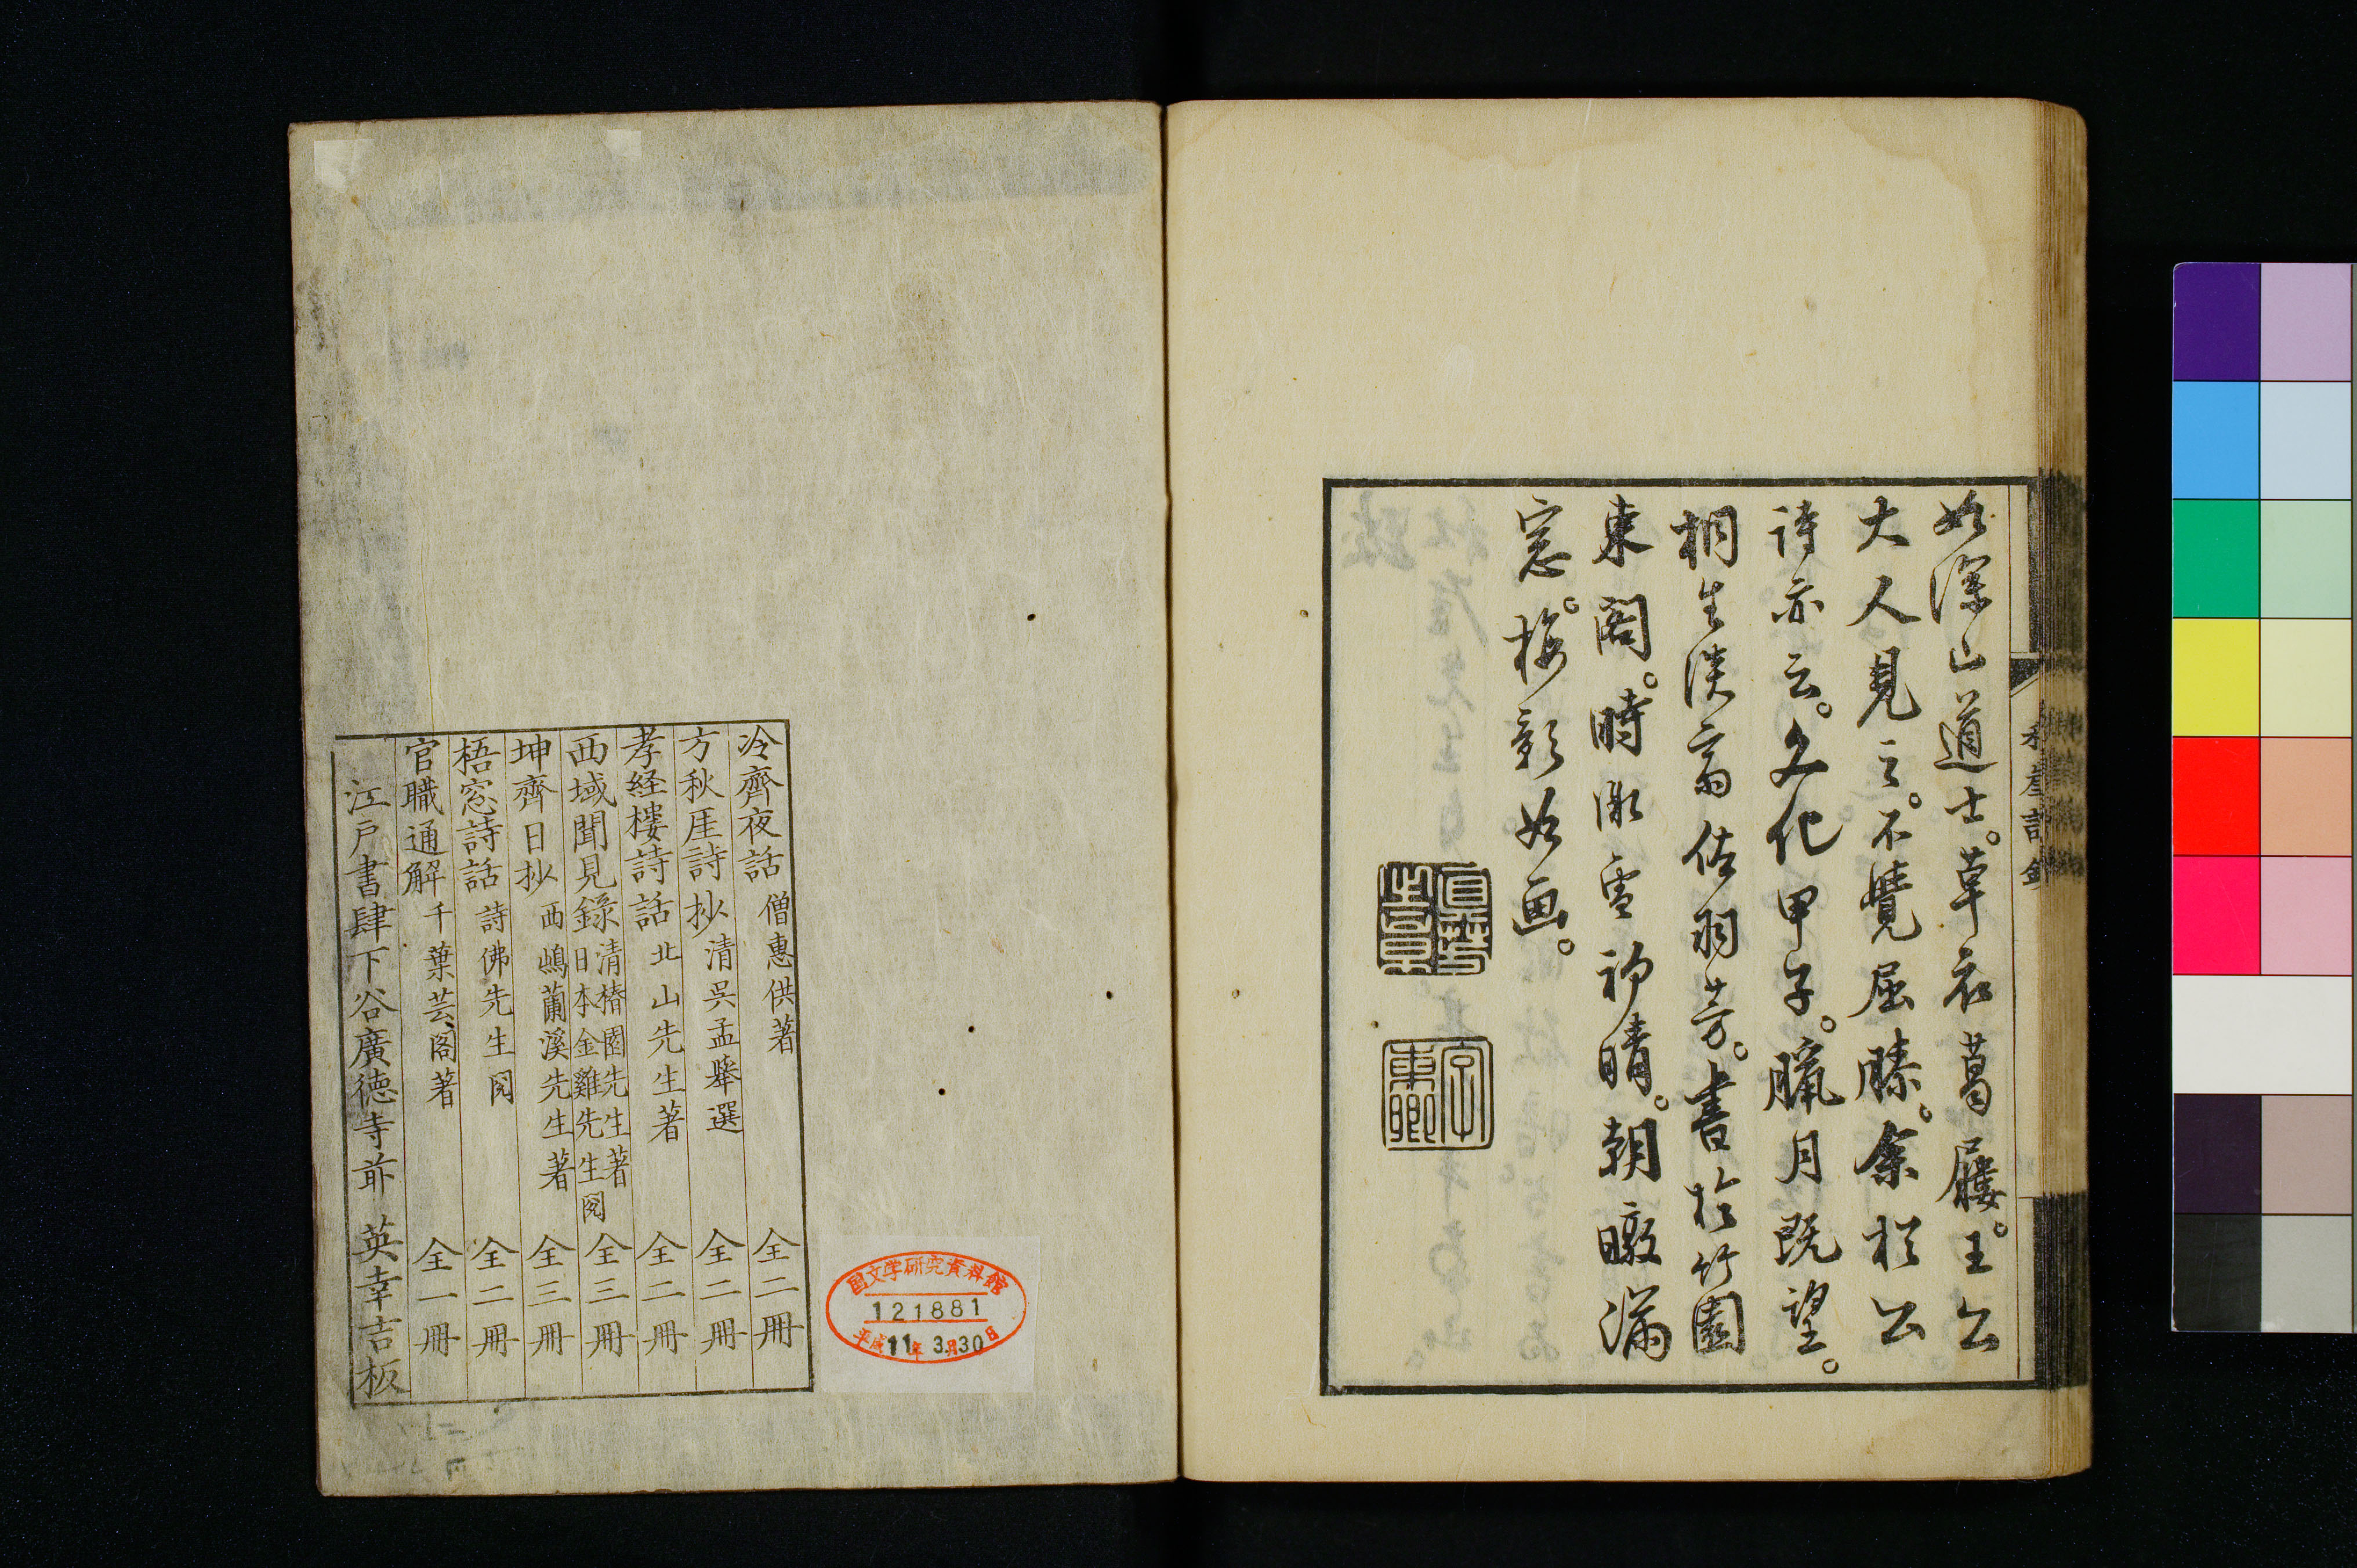 如深山道士。草衣葛屨。王公
大人見之。不覺屈膝。余於公
詩亦云。文化甲子。臘月既望。
桐生淡齋佐羽芳。書於竹園
東閣。時漸雪初晴。朝暾滿
窓。梅影如画。
秋崖詩鈔
冷齊夜話 僧惠供著 全二冊
方秋厓詩抄 清吳孟擧選 全二冊
孝経樓詩話 北山先生著 全二冊
西域聞見錄 清椿園先生著 日本金雞先生閱 全三冊
坤齊日抄 西嶋蘭溪先生著 全三冊
梧窓詩話 詩佛先生閱 全二冊
官職通解 千葉芸閣著 全一冊
江戶書肆下谷廣徳寺前 英幸吉板
国文学研究資料館
121881
平成11年3月30日